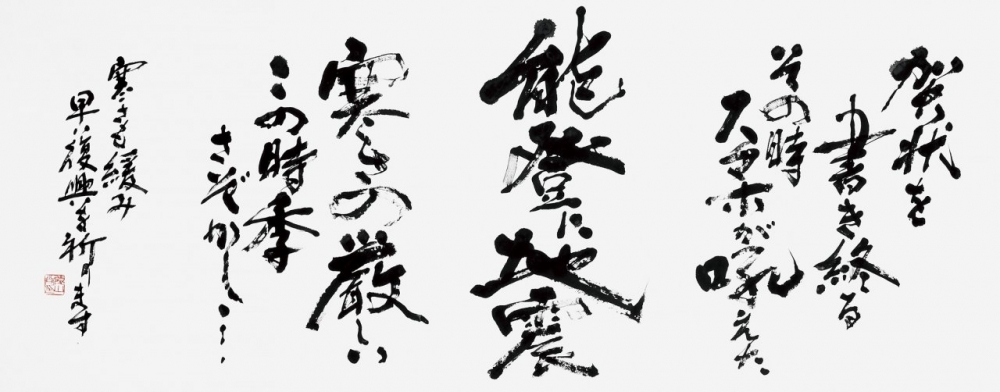 賀状を
書き終る
その時
スマホが吼えた
能登に地震
寒さの厳しい
この時季
さぞかし……
寒さも緩み
早い復興を祈ります